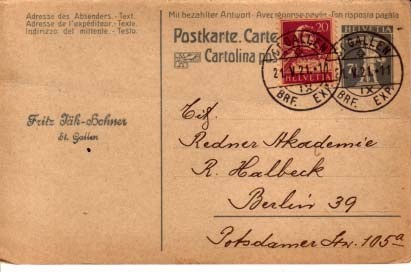 Adresse des Absenders. - Text.
Adresse de l'expéditeur. - Texte.
Indirizzo del mittente. - Testo.
Mit bezahlter Antwort - Avec réponse payée - Con risposta pagata
Postkarte. Carte
Cartolina po
20
HELVETIA
HELVETIA
ST. GALLEN
IX
BRF. EXP.
GALLEN
IX
BRF. EXP.
Fritz Täh-Bohner
St. Gallen
Redner Akademie
R. Halbeck
Berlin 39
Potsdamer Str. 105a